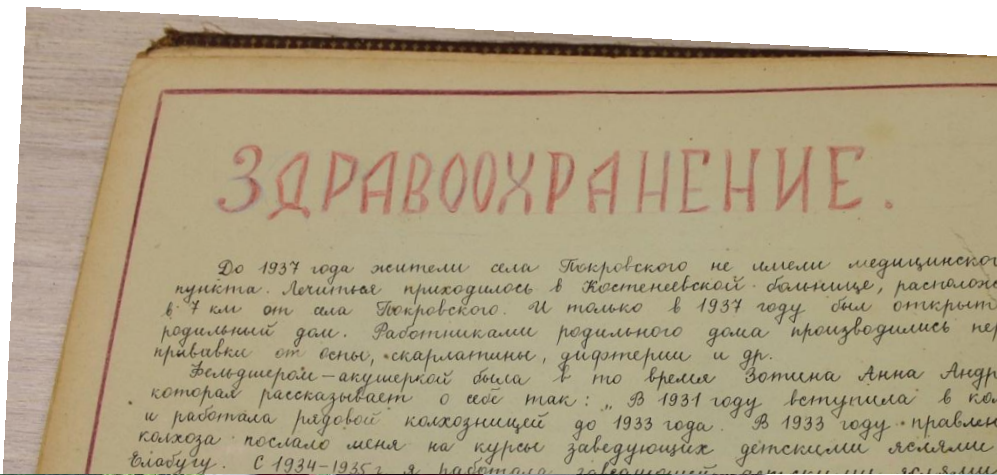 ЗДРАВООХРАНЕНИЕ.
До 1937 года жители села Покровского не имели медицинског
пункта. Лечиться приходилось в Костенеевской больнице, расположе
в 7 км от села Покровского. И только в 1937 году был открыт
родильный дом. Работниками родильного дома производились пер
прививки от оспы, скарлатины, дифтерии и др.
Фельдшером-акушеркой была в то время Зотина Анна Андр
которая рассказывает о себе так: „В 1931 году вступила в кол
и работала рядовой колхозницей до 1933 года. В 1933 году правлен
колхоза послало меня на курсы заведующих детскими яслями
Елабугу. С 1934-1935 г я работала заведующей детскими яслями